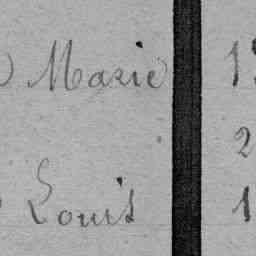 Marie
2
Louis 1